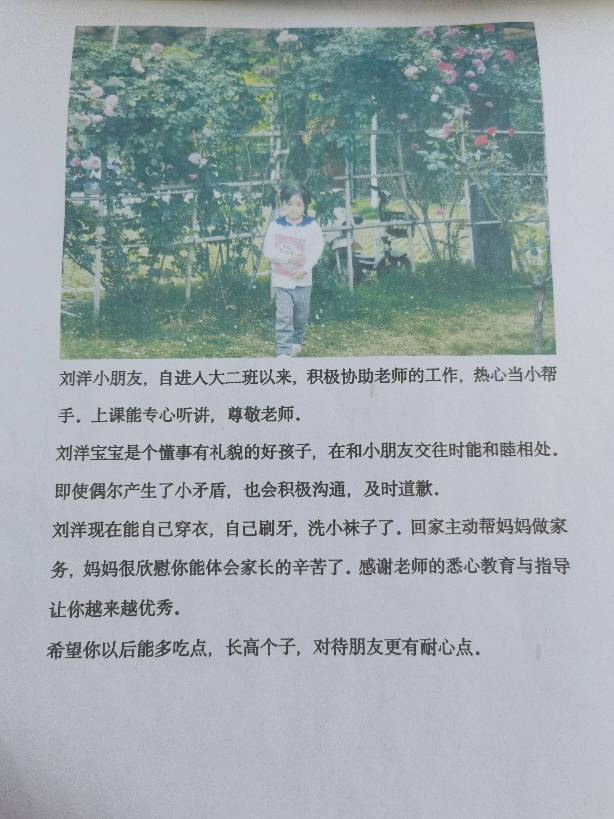 刘洋小朋友，自进人大二班以来，积极协助老师的工作，热心当小帮
手．上课能专心听讲，尊敬老师．
刘洋宝宝是个懂事有礼貌的好孩子，在和小朋友交往时能和睦相处．
即使偶尔产生了小矛盾，也会积极沟通，及时道歉．
刘洋现在能自己穿衣，自己刷牙，洗小袜子了．回家主动帮妈妈做家
务，妈妈很欣慰你能体会家长的辛苦了．感谢老师的悉心教育与指导
让你越来越优秀．
希望你以后能多吃点，长高个子，对待朋友更有耐心点．